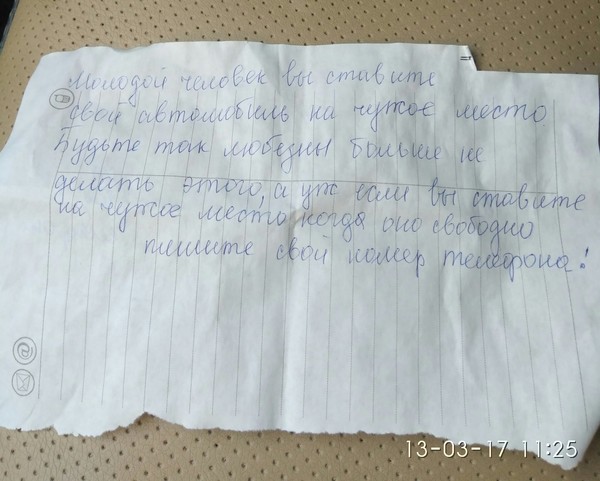 Молодой человек вы ставите
свой автомобиль на чужое место
Будьте так любезны больше не
делать этого, а уж если вы ставите
на чужое место когда оно свободно
пишите свой номер телефона!
13-03-17 11:25